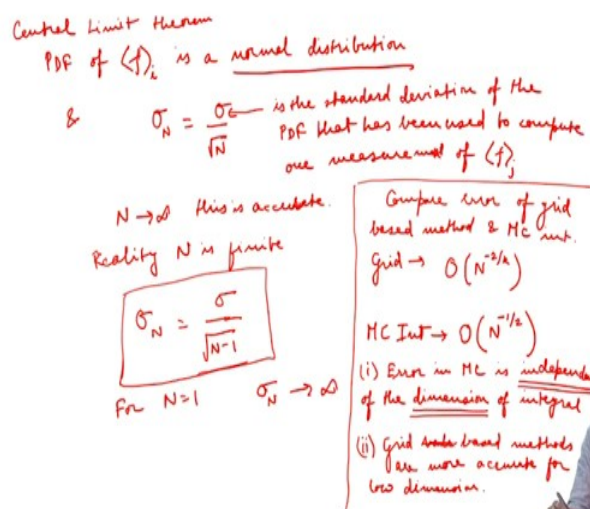 Central Limit theorem
PDF of ⟨f⟩ᵢ is a normal distribution
& σ_N = σ/√N ← is the standard deviation of the
PDF that has been used to compute
one measurement of ⟨f⟩ⱼ
N → ∞ this is accurate.
Reality N is finite
σ_N = σ/√(N-1)
For N=1 σ_N → ∞
Compare error of grid
based method & MC int.
Grid →
MC Int → O(N^(-1/2))
(i) Error in MC is independe
of the dimension of integral
(ii) Grid based methods
are more accurate for
low dimension.